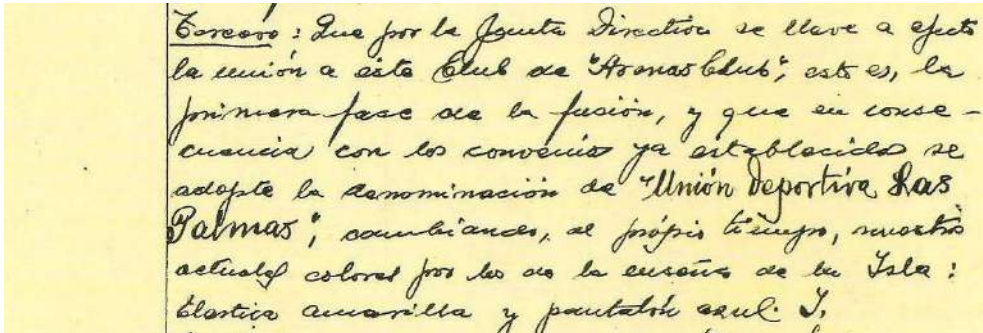 Tercero: Que por la Junta Directiva se lleve a efecto
la unión a éste Club de "Arenas Club", esto es, la
primera fase de la fusión, y que en conse-
cuencia con los convenios ya establecidos se
adopte la denominación de "Unión Deportiva Las
Palmas", cambiando, al própio tiempo, nuestros
actuales colores por los de la enseña de la Isla:
Elastica amarilla y pantalón azul. Y,